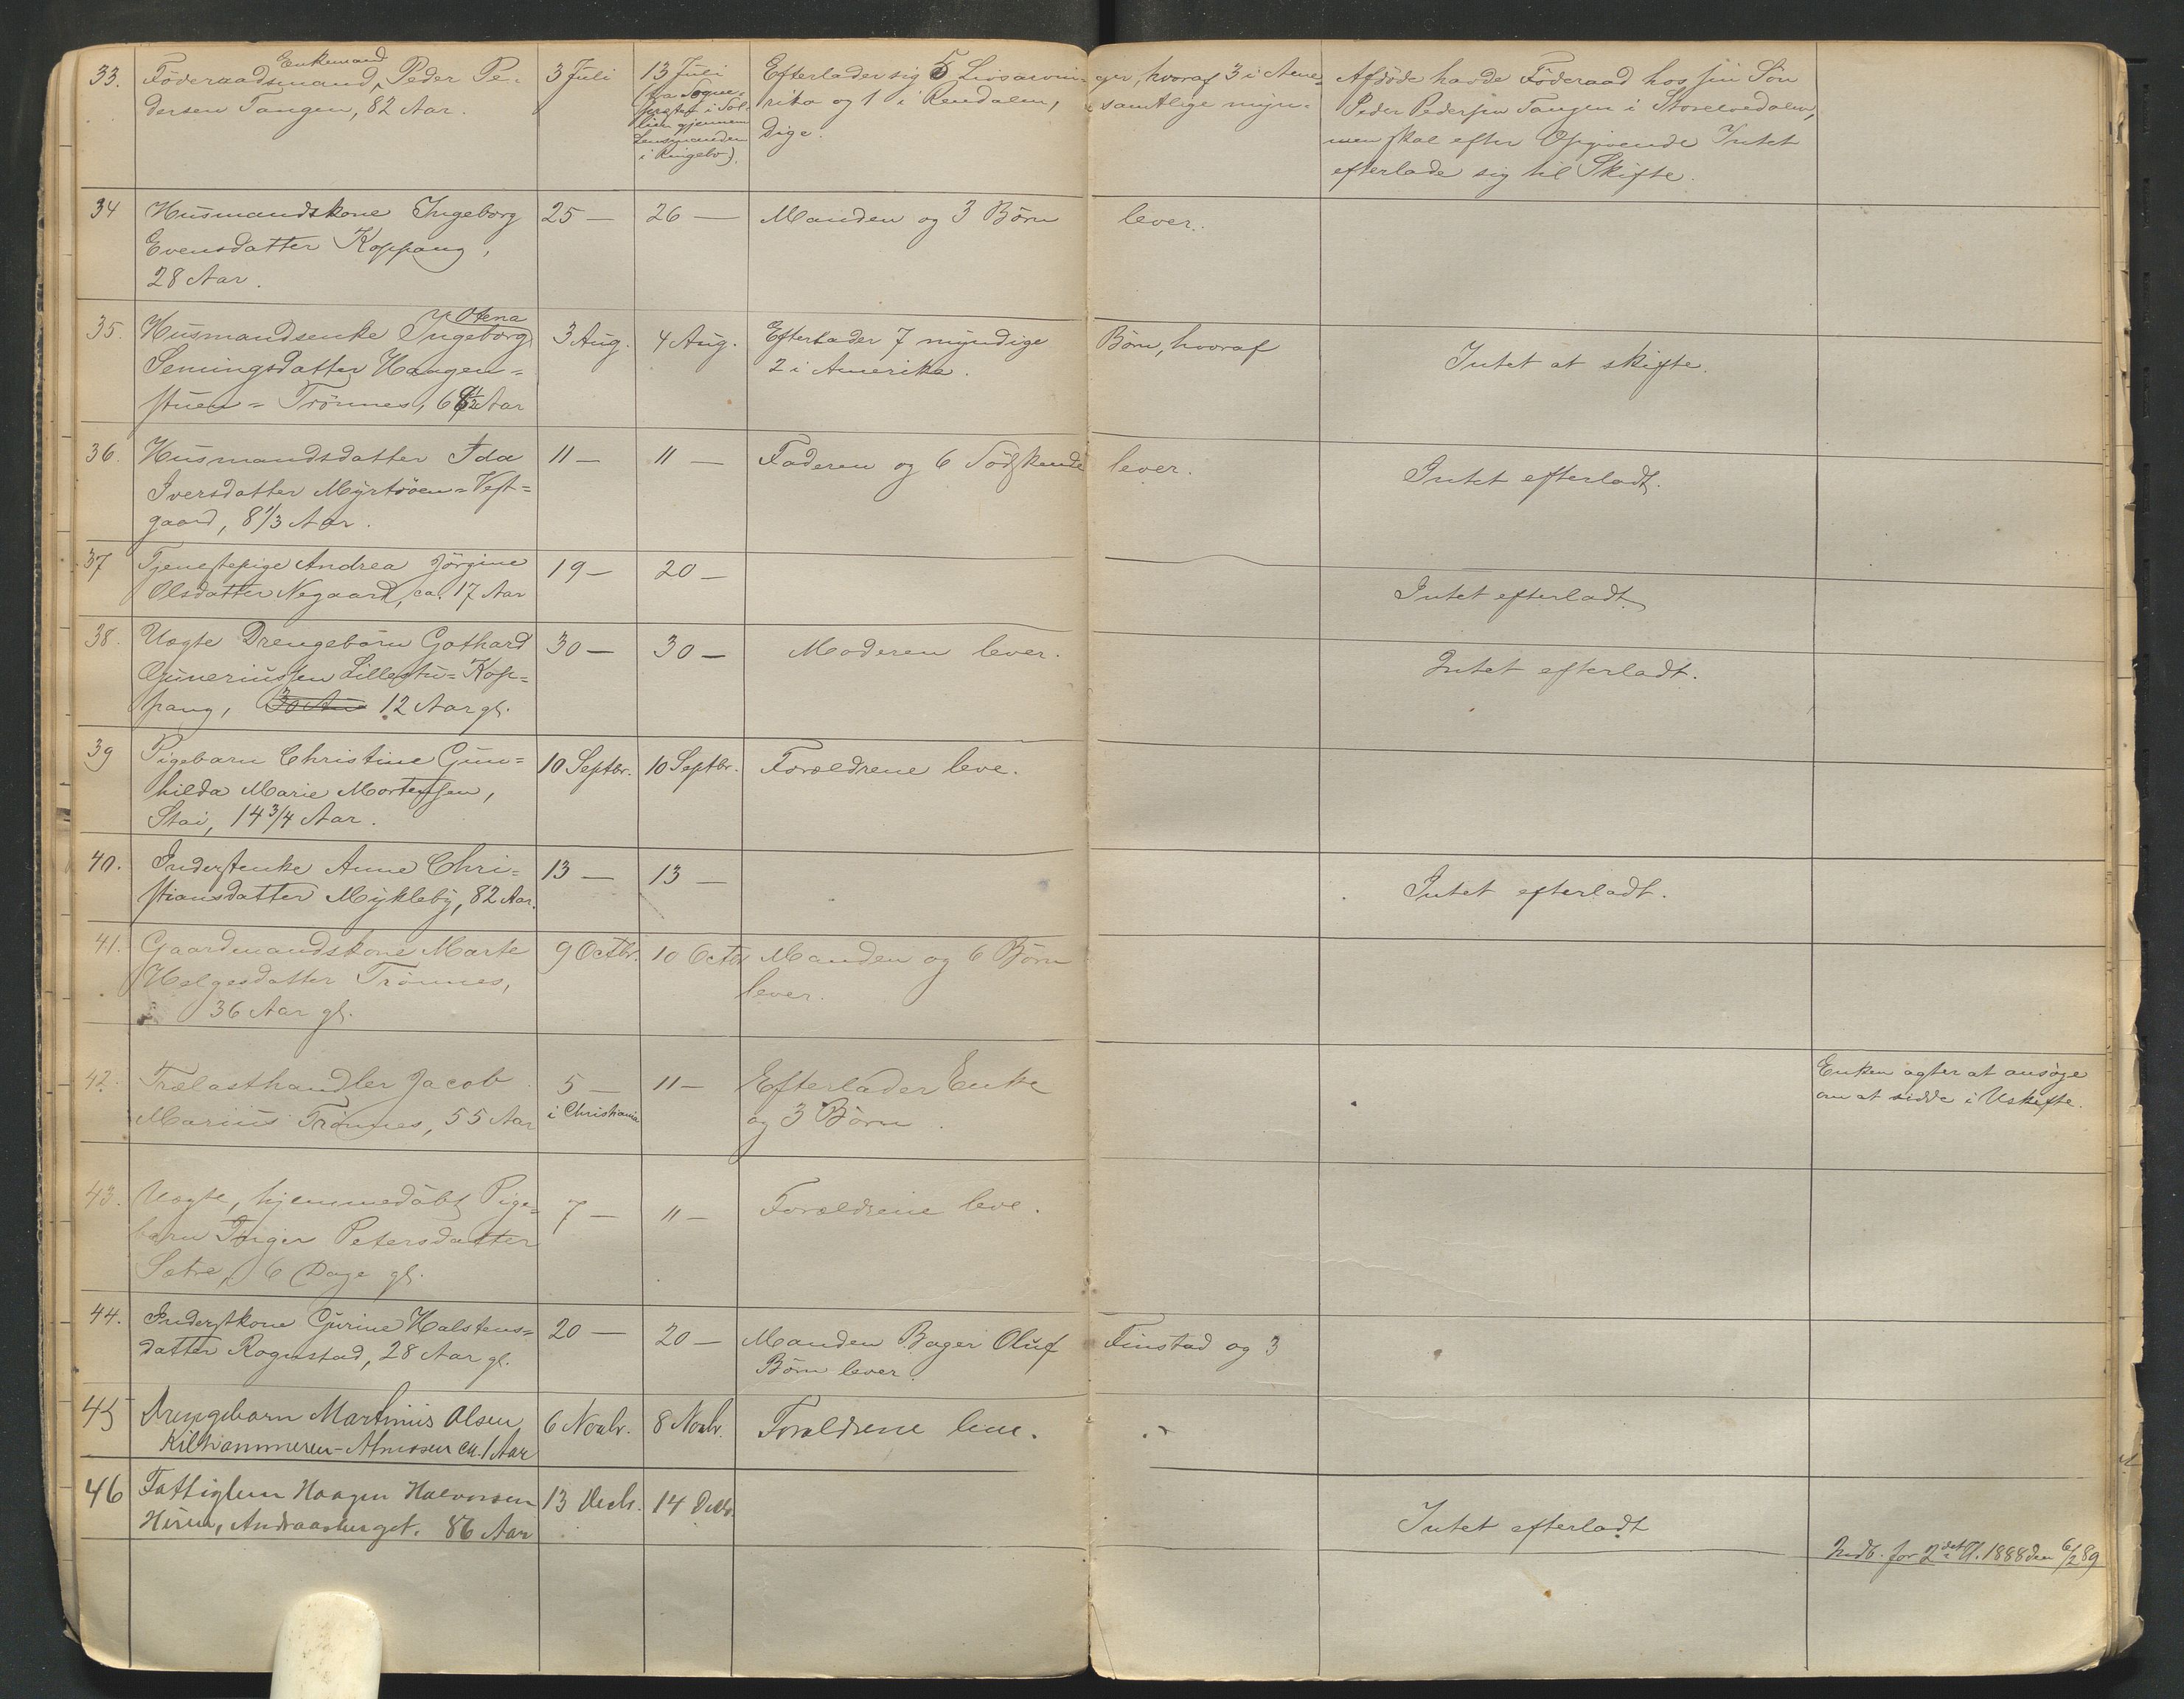 33. Föderaadsmand, Enkemand Peder Pe-
dersen Tangen, 82 Aar.
3 Juli
13 Juli
(fra Sogne-
præsten i Sol-
lien gjennem
Lensmanden
i Ringebo).
Efterlader sig 5 Livsarvin-
ger, hvoraf 3 i Ame-
rika og 1 i Rendalen,
samtlige myn-
dige.
Afdöde havde Föderaad hos sin Sön
Peder Pedersen Tangen i Storelvedalen,
men skal efter Opgivende Intet
efterlade sig til Skifte.
34 Husmandskone Ingeborg
Evensdatter Koppang,
28 Aar.
25 —
26 —
Manden og 3 Börn lever.
35. Husmandsenke Ingeborg Olena
Semingsdatter Haagen-
stuen = Trönnes, 68½ Aar
3 Aug.
4 Aug.
Efterlader 7 myndige Börn, hvoraf
2 i Amerika.
Intet at skifte.
36. Husmandsdatter Ida
Iversdatter Myrtröen = Vest-
gaard, 8 1/3 Aar.
11 —
11 —
Faderen og 6 Södskende lever.
Intet efterladt.
37 Tjenestepige Andrea Jörgine
Olsdatter Negaard, ca. 17 Aar
19 —
20 —
Intet efterladt.
38. Uægte Drengebarn Gothard
Guneriussen Lillestu = Kop-
pang, 12 Aar gl.
30 —
30 —
Moderen lever.
Intet efterladt.
39 Pigebarn Christine Gun-
hilda Marie Mortensen,
Stai, 14 3/4 Aar.
10 Septbr.
10 Septbr.
Forældrene leve.
40. Inderstenke Anne Chri-
stiansdatter Mykleby, 82 Aar.
13 —
13 —
Intet efterladt.
41. Gaardmandskone Marte
Helgesdatter Trönnes,
36 Aar gl.
9 Octbr.
10 Octbr
Manden og 6 Börn
lever.
42. Trælasthandler Jacob
Marius Trönnes, 55 Aar
5 —
i Christiania
11 —
Efterlader Enke
og 3 Börn.
Enken agter at ansöge
om at sidde i Uskifte.
43. Uægte, hjemmedöbt Pige-
barn Inger Petersdatter
Sætre, 6 Dage gl.
7 —
11 —
Forældrene leve.
44. Inderstkone Gurine Halstens-
datter Rognstad, 28 Aar gl.
20 —
20 —
Manden Bager Oluf Finstad og 3
Börn lever.
45 Drengebarn Martinius Olsen
Kilhammeren - Atneosen ca. 1 Aar
6 Novbr.
8 Novbr.
Forældrene leve.
46 Fattiglem Haagen Halvorsen
Hirun, Andraasberget. 86 Aar
13 Decbr.
14 Decbr.
Intet efterladt
Indb. for 2det H. 1888 den 6/2 89